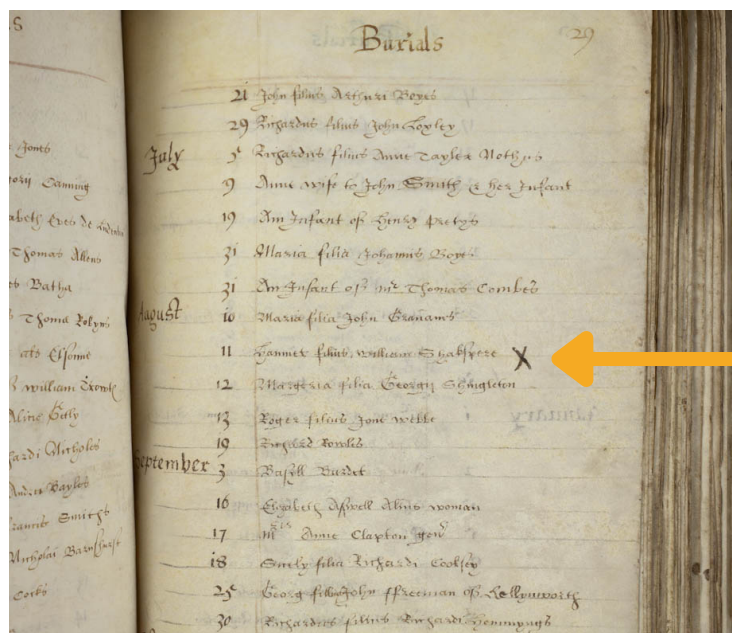 s
Jones
orij Canning
abeth Eves de
Thomas Allens
Batha
Thoma Robyns
als Elsonne
William
Aline
ardi Nicholes
Bayles
rancis Smiths
Nicholai Barnhurst
Cocks
Burials 29
21 John filius Arthuri Boyes
29 Richardus filius John Loxley
July 5 Richardus filius Anne Tayler Nothus
9 Anne wife to John Smith & her Infant
19 An Infant of Henry Pretys
31 Maria filia Johannis Boyes
31 An Infant of Mr Thomas Combes
August 10 Maria filia John Grananis
11 Hamnet filius William Shakspere X
12 Margeria filia Georgij Shingleton
13 Roger filius Jone Welle
19 Richard Rowles
September 3 Basill Burdet
16 Elizabeth Aspell Alins woman
17 Mris Anne Clapton gen
18 Sicily filia Richardi Cooksey
25 Georg filius John ffreeman of Kellynworth
30 Richardus filius Richardi Hemmyngs